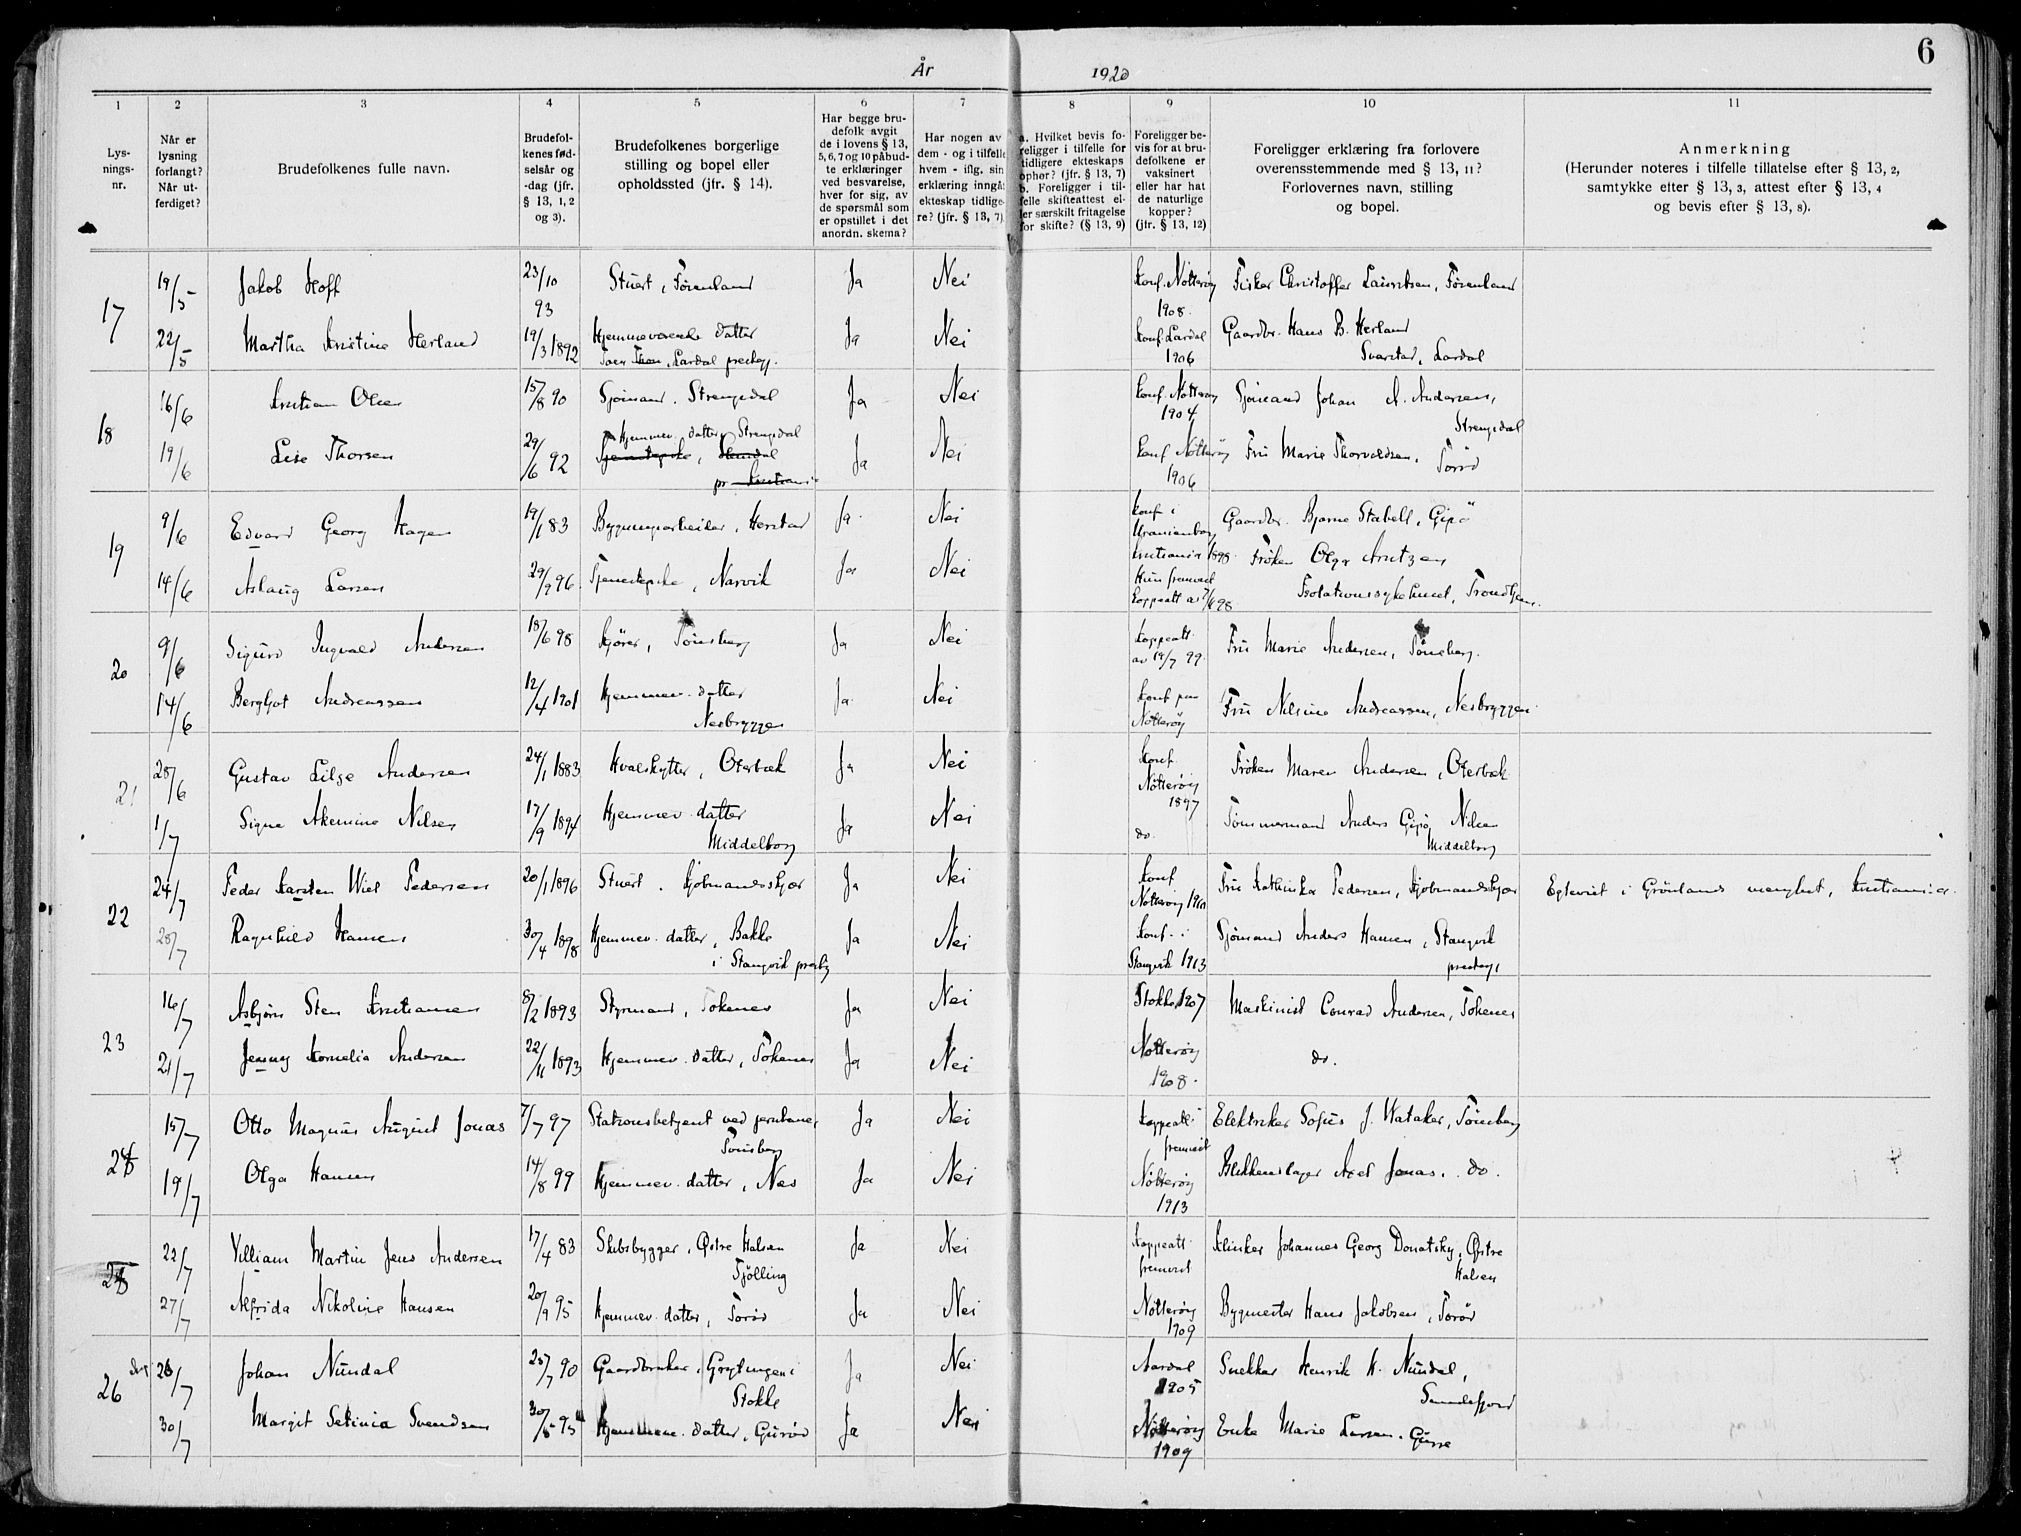 6
År 1920
1 2 3 4 5 6 7 8 9 10 11
Lys-
nings-
nr.
Når er
lysning
forlangt?
Når ut-
ferdiget?
Brudefolkenes fulle navn.
Brudefol-
kenes fød-
selsår og
-dag (jfr.
§ 13, 1, 2
og 3).
Brudefolkenes borgerlige
stilling og bopel eller
opholdssted (jfr. § 14).
Har begge bru-
defolk avgit
de i lovens § 13,
5, 6, 7 og 10 påbud-
te erklæringer
ved besvarelse,
hver for sig, av
de spørsmål som
er opstillet i det
anordn. skema?
Har nogen av
dem - og i tilfelle
hvem - iflg. sin
erklæring inngåt
ekteskap tidlige-
re? (jfr. § 13, 7)
a. Hvilket bevis fo-
religger i tilfelle for
tidligere ekteskaps
ophør? (jfr. § 13, 7)
b. Foreligger i til-
felle skifteattest el-
ler særskilt fritagelse
for skifte? (§ 13, 9)
Foreligger be-
vis for at bru-
defolkene er
vaksinert
eller har hat
de naturlige
kopper?
(jfr. § 13, 12)
Foreligger erklæring fra forlovere
overensstemmende med § 13, 11?
Forlovernes navn, stilling
og bopel.
Anmerkning
(Herunder noteres i tilfelle tillatelse efter § 13, 2,
samtykke etter § 13, 3, attest efter § 13, 4
og bevis efter § 13, 8).
17
19/5 Jakob Hoff 23/10 93 Stuert, Førenland Ja Nei Konf. Nøtterøy 1908. Fisker Christoffer Lauritsen, Førenland
22/5 Martha Kristine Herland 19/3 1892 Hjemmeværende datter Ja Nei Konf. Lardal 1906 Gaardbr. Hans B. Herland
Lardal prestegj. Svarstad, Lardal
18
16/6 Kristian Olsen 15/8 90 Sjømand. Strengsdal Ja Nei Konf. Nøtterøy 1904 Sjømand Johan A. Andersen,
Strengsdal
19/6 Lise Thorsen 29/6 92 Hjemmev. datter, Strengsdal Ja Nei Konf Nøtterøy 1906 Fru Marie Thorvaldsen. Torød
19
9/6 Edvard Georg Hagen 19/1 83 Bygningsarbeider, Herstad Ja. Nei Konf i Uranienborg Kristiania 1898. Gaardbr. Bjarne Stabell, Gipø
14/6 Aslaug Larsen 29/9 96. Tjenestepike, Narvik Ja Nei Hun fremvist koppeatt av 7/6 98. Frøken Olga Arntzen
Isolationssykehuset, Trondhjem.
20
9/6 Sigurd Ingvald Andersen 18/6 98 Kjører, Tønsberg Ja Nei Koppeatt. av 19/7 99. Fru Marie Andersen, Tønsberg.
14/6 Bergljot Andreassen 12/4 1901 Hjemmev. datter Ja. Nei Konf paa Nøtterøy Fru Nilsine Andreassen, Nesbryggen.
Nesbryggen
21
28/6 Gustav Lilge Andersen 24/1 1883 Hvalskytter, Oterbæk Ja Nei Konf. Nøtterøy 1897 Frøken Maren Andersen, Oterbæk
1/7 Signe Akemine Nilsen 17/9 1894 Hjemmev. datter Ja Nei do. Tømmermand Anders Gipø Nilsen
Middelborg Middelborg
22
24/7 Peder Karsten Wiel Pedersen 20/1 1896 Stuert. Kjøbmandsskjær Ja Nei Konf Nøtterøy Fru Kathinka Pedersen, Kjøbmandsskjær Egteviet i Grønlands menighet, Kristiania.
28/7 Ragnhild Hansen 30/4 1898 Hjemmev. datter, Bakke Ja Nei Konf. i Stangvik 1913 Sjømand Anders Hansen, Stangvik
i Stangvik prestegj prestegj.
23
16/7 Asbjørn Sten Kristiansen 8/2 1893 Styrmand, Tokenes Ja Nei Stokke 1907 Maskinist Conrad Andersen, Tokenes
21/7 Jenny Kornelia Andersen 22/11 1893 Hjemmev. datter, Tokenes Ja Nei Nøtterøy 1908. do.
24
15/7 Otto Magnus August Jonas 7/7 97 Stationsbetjent ved jernbanen, Ja Nei Koppeatt. fremvist Elektriker Sofus J. Wataker, Tønsberg
Tønsberg
19/7 Olga Hansen 14/8 99 Hjemmev. datter, Nes Ja Nei Nøtterøy 1913 Blikkenslager Axel Jonas. do.
22/7 Villiam Martin Jens Andersen 17/4 83 Skibsbygger, Østre Halsen Ja Nei Koppeatt. fremvist Klinker Johannes Georg Donatsky, Østre
Tjølling Halsen
27/7 Alfrida Nikoline Hansen 20/9 95 Hjemmev. datter, Torød Ja Nei Nøtterøy 1909 Bygmester Hans Jakobsen, Torød
26
28/7 Johan Nundal 90 Gaardbruker, Grytingen i Ja Nei Aardal 1905 Snekker Henrik H. Nundal,
Stokke Sandefjord
30/7 Margit Selinia Svendsen 95 Hjemmev. datter, Gurød Ja Nei Nøtterøy 1909 Enke Marie Larsen.